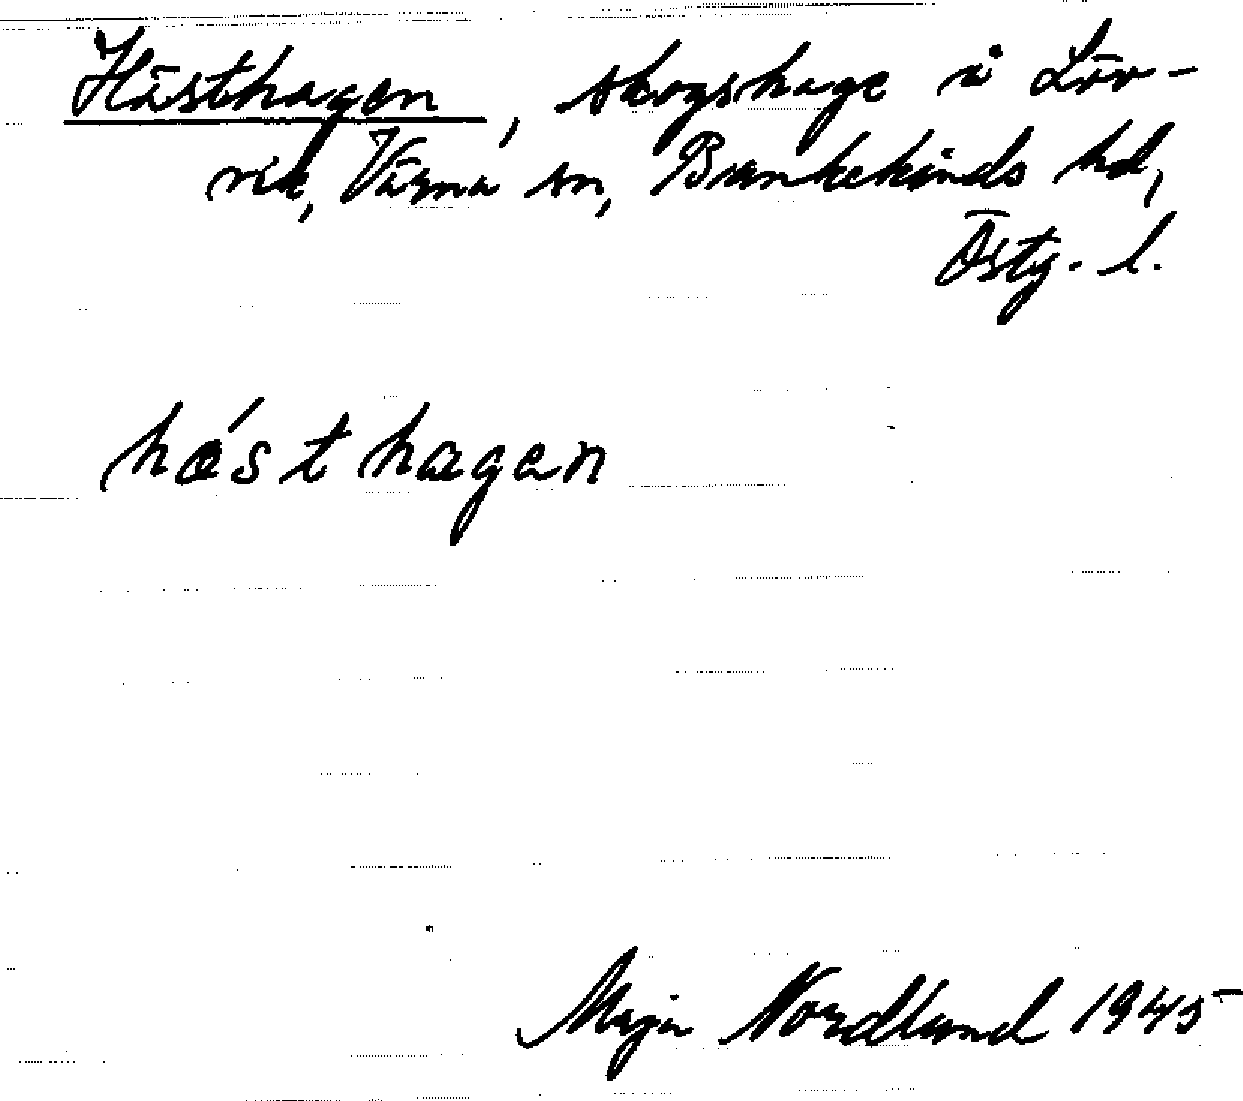 Hästhagen, skogshage i Löv-
vik, Värna sn, Bankekinds hd,
Östg. l.
hǽsthagan
Maja Nordlund 1945